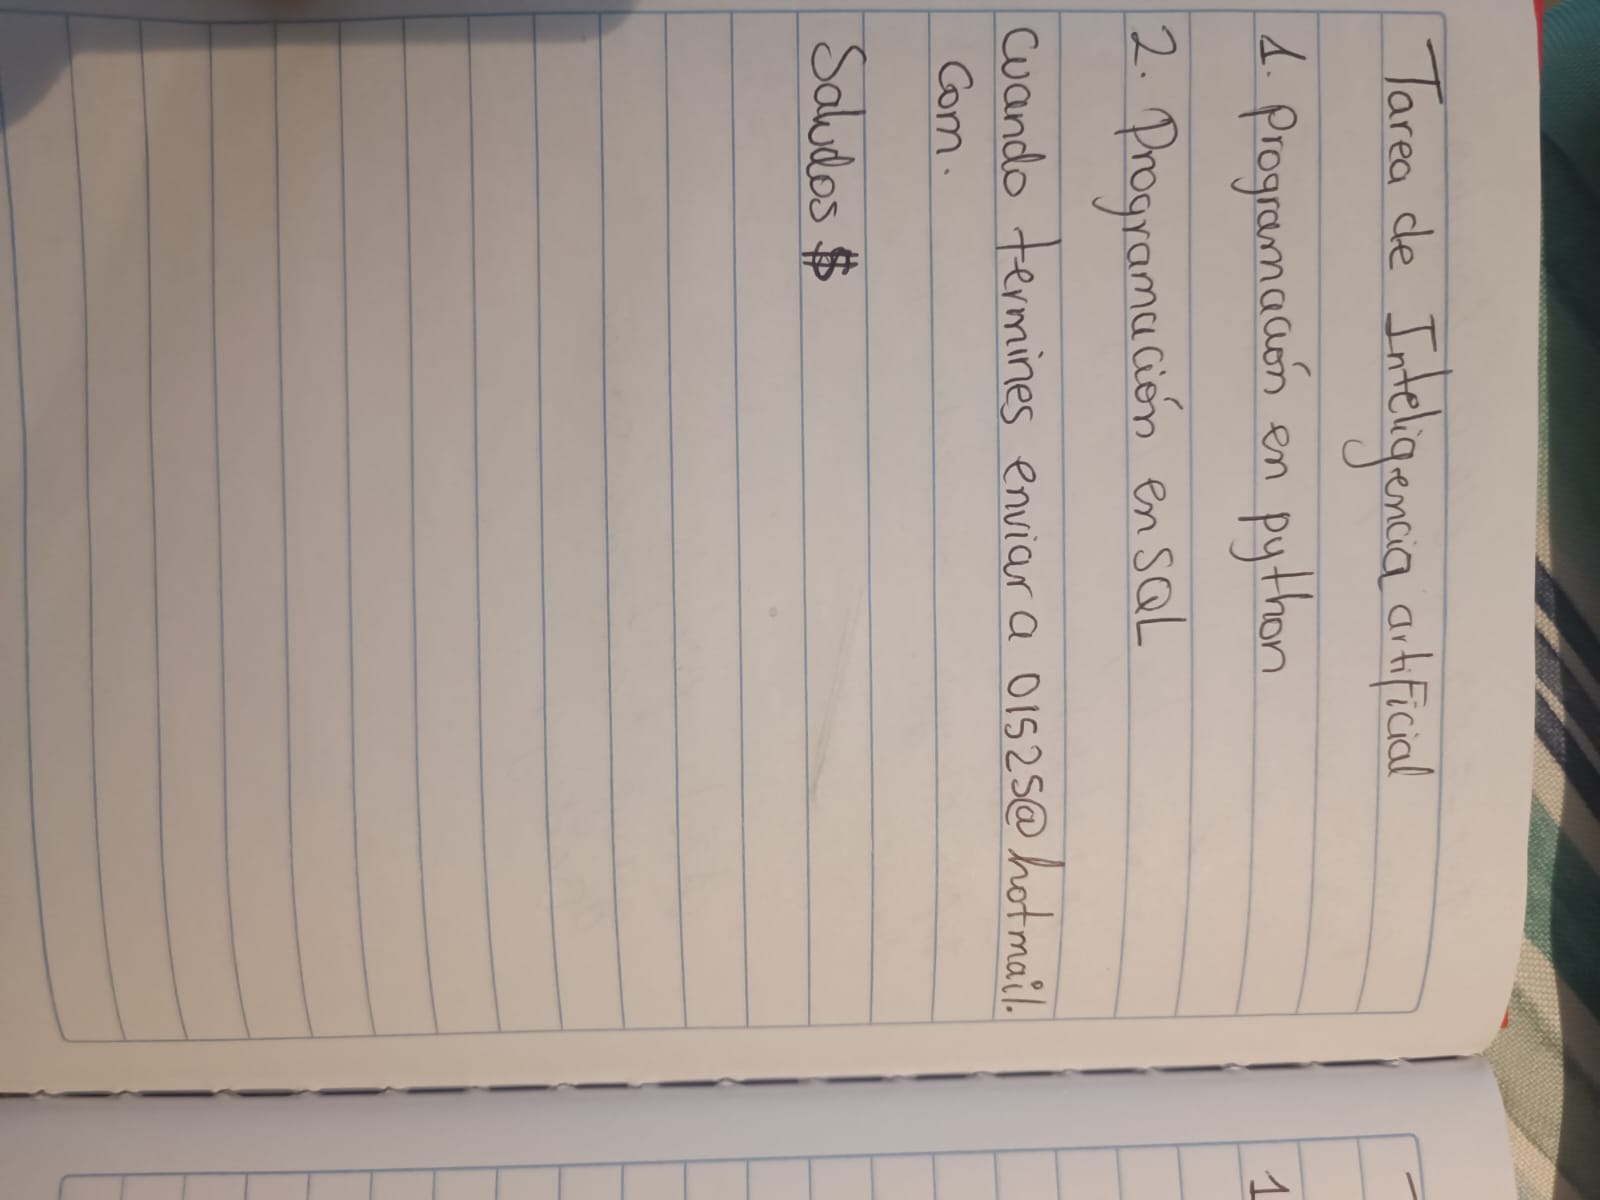 Tarea de Inteligencia artificial
1. Programación en python
2. Programación en SQL
cuando termines enviar a 01525@hotmail.
com.
Saludos $
1